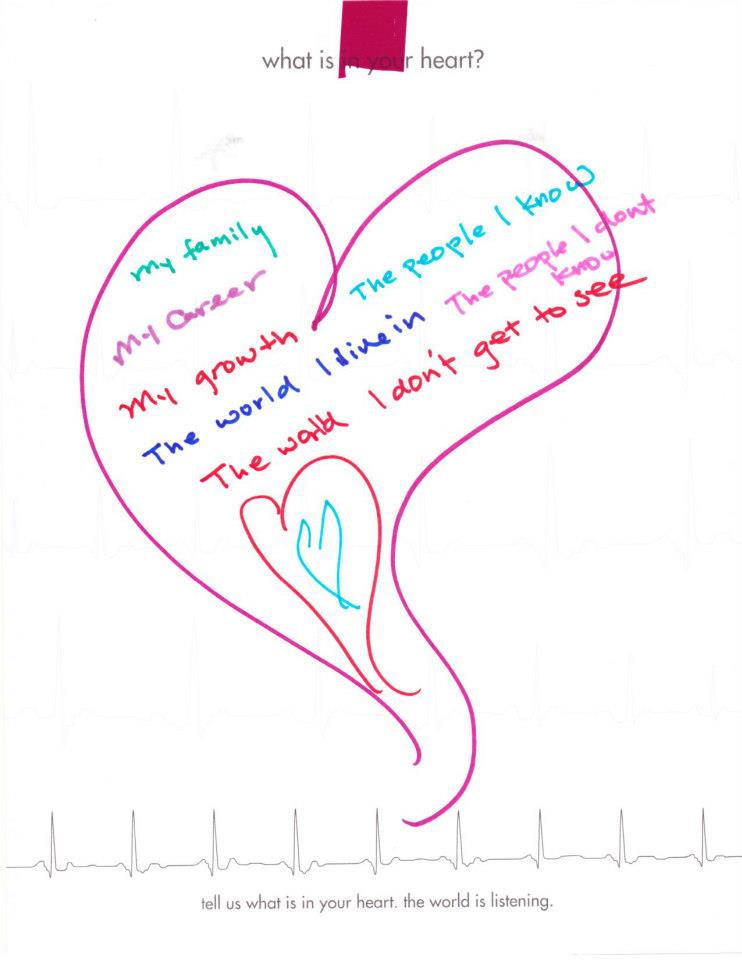 what is in your heart?
my family
My Career
My growth
The world I live in
The world I don't get to see
The people I know
The people I dont
know
tell us what is in your heart. the world is listening.